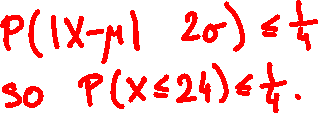 P(|X-μ| 2σ) ≤ 1/4
so P(X≤24)≤ 1/4.